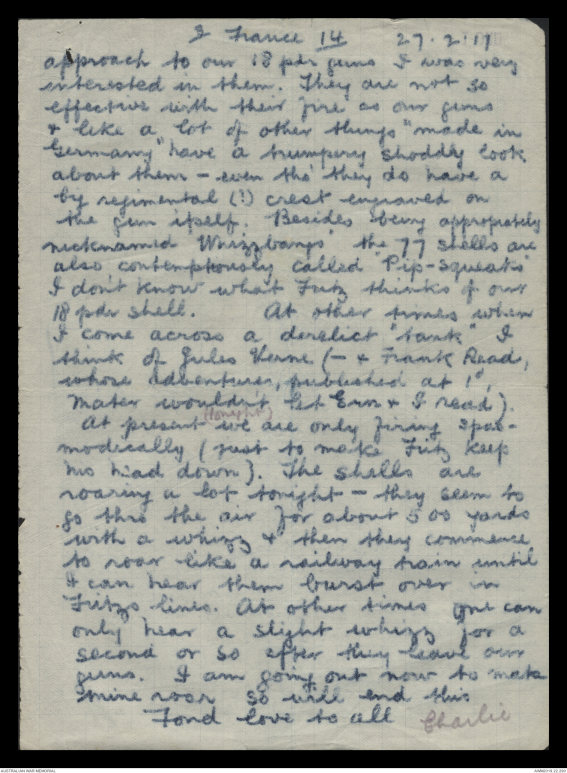 I France 14 27.2.17
approach to our 18 pdr guns I was very
interested in them. They are not so
effective with their fire as our guns
& like a lot of other things "made in
Germany" have a trumpery shoddy look
about them – even tho' they do have a
big regimental (!) crest engraved on
the gun itself. Besides being appropriately
nicknamed "Whizzbangs" the 77 shells are
also contemptously called "Pip-squeaks"
I don't know what Fritz thinks of our
18 pdr shell. At other times when
I come across a derelict "tank" I
think of Jules Verne (– & Frank Read,
whose adventures, published at 1d,
Mater wouldn't let Ern & I read).
(tonight)
At present we are only firing spas-
modically (just to make Fritz keep
his head down). The shells are
roaring a lot tonight – they seem to
go thro the air for about 500 yards
with a whizz & then they commence
to roar like a railway train until
I can hear them burst over in
Fritzs lines. At other times one can
only hear a slight whizz for a
second or so after they leave our
guns. I am going out now to make
mine roar so will end this
Fond love to all Charlie
AUSTRALIAN WAR MEMORIAL